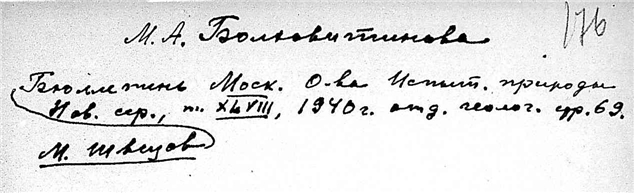 176
М. А. Болховитинова
Бюллетень Моск. О-ва Испыт. природы
Нов. сер., т. XLVIII, 1940 г. отд. геолог. стр. 69.
М. Швецов